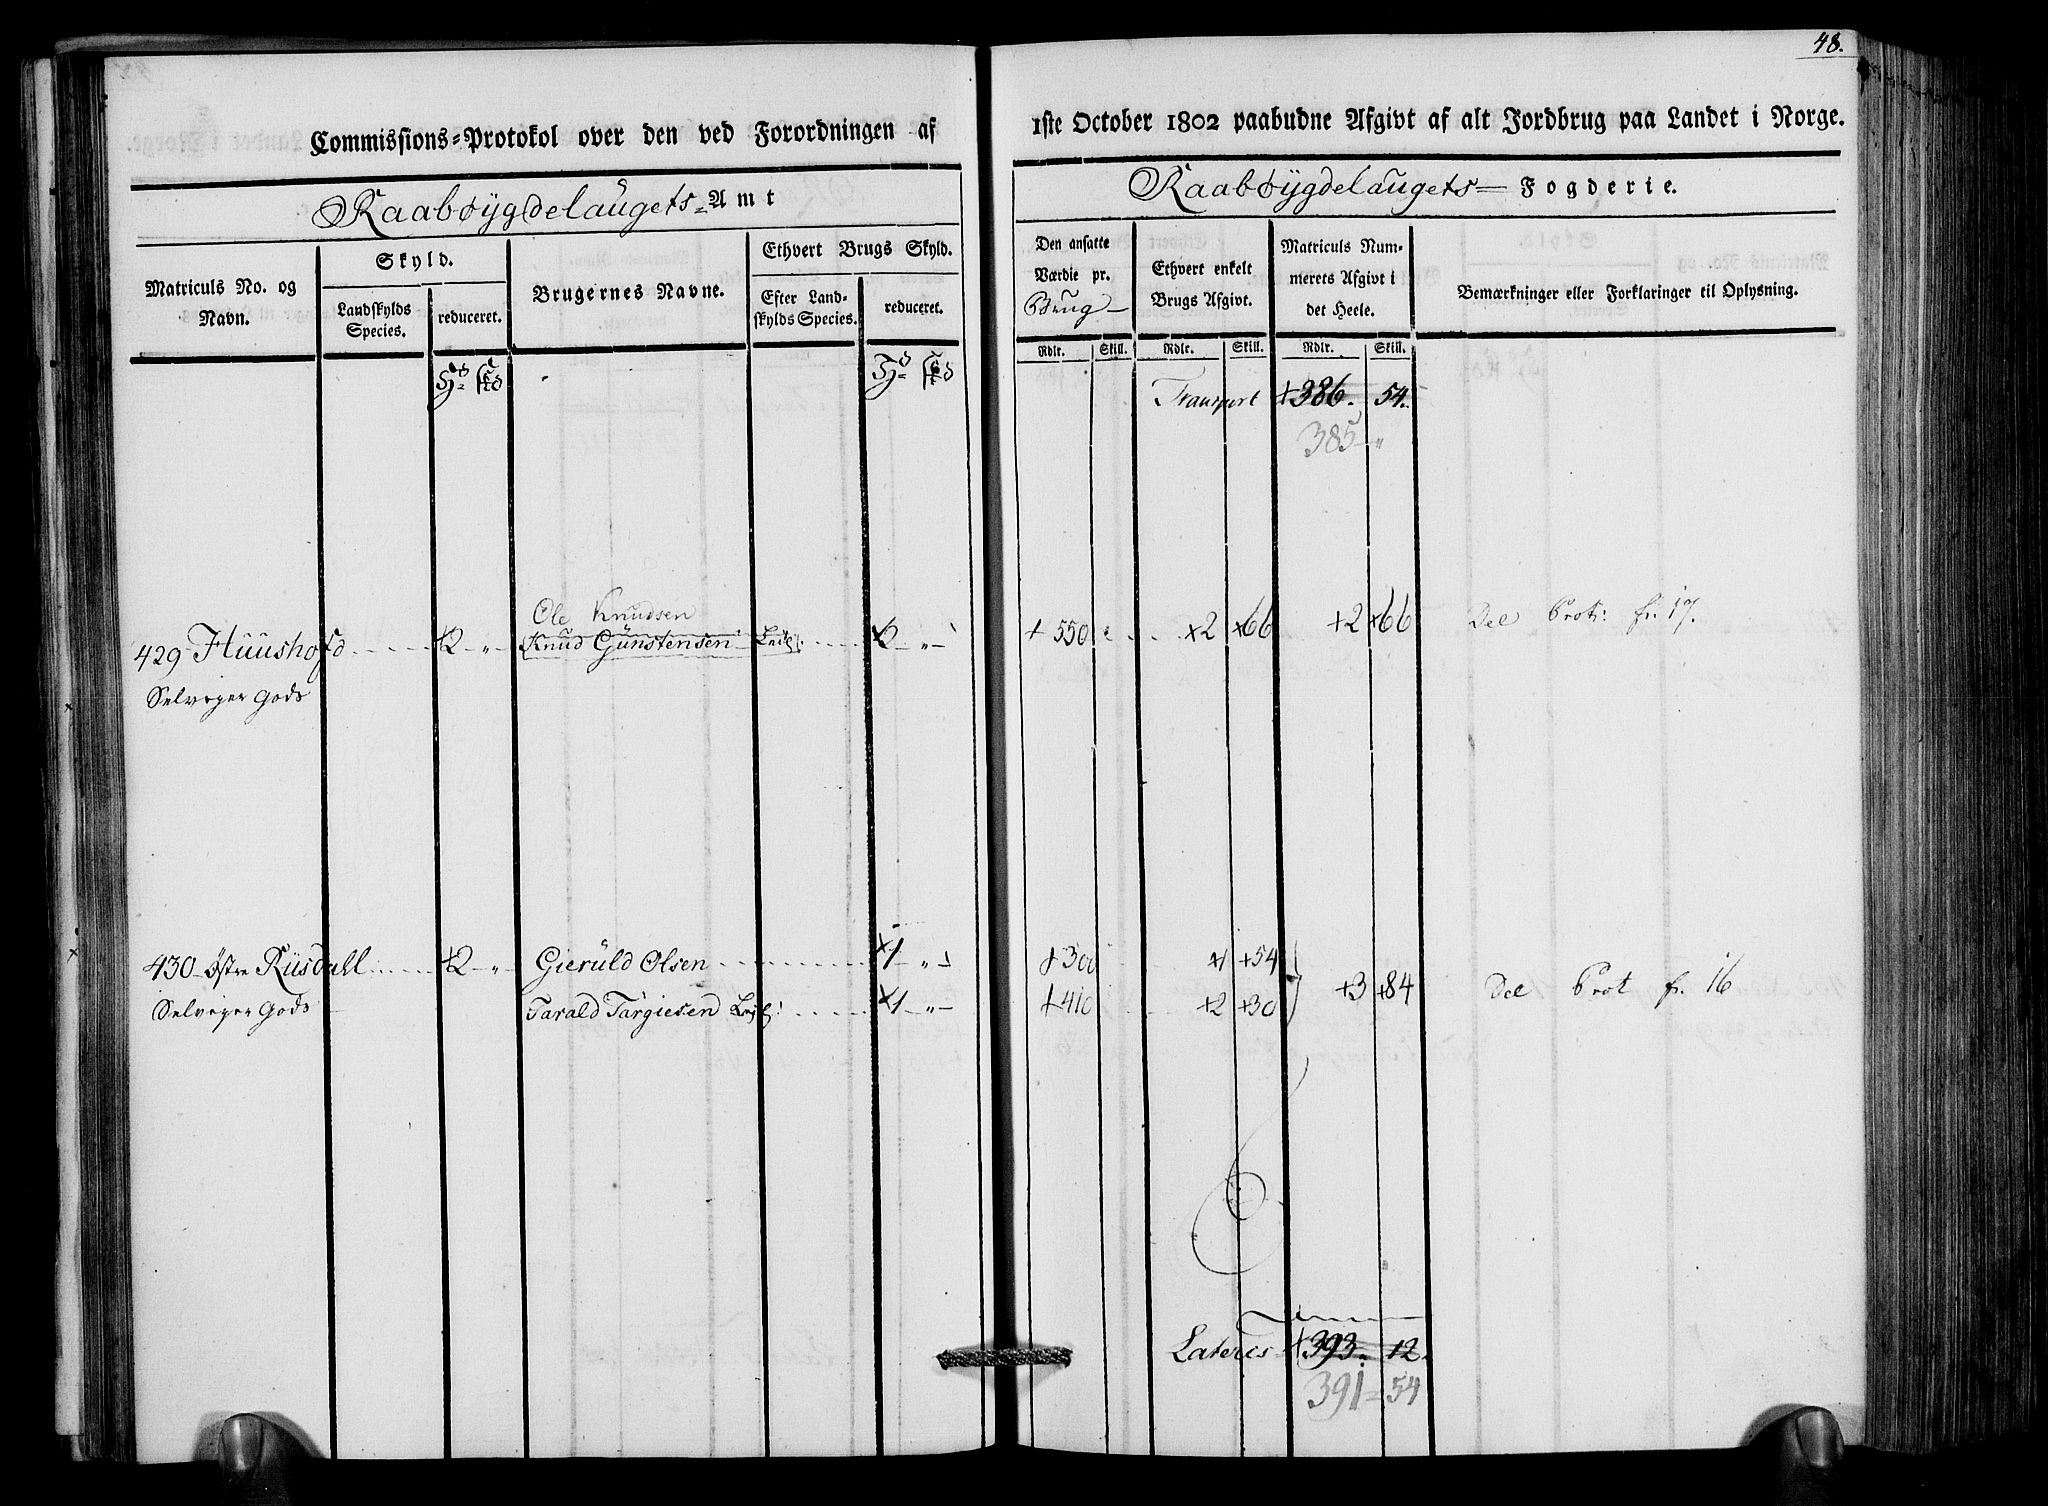 48.
Commissions-Protokol over den ved Forordningen af
1ste October 1802 paabudne Afgivt af alt Jordbrug paa Landet i Norge.
Raabøygdelaugets Amt
Raabøygdelaugets Fogderie.
Matriculs No. og Navn.
Skyld.
Landskylds Species.
reduceret.
Brugernes Navne.
Ethvert Brugs Skyld.
Efter Landskylds Species.
reduceret.
Den ansatte Værdie pr. Brug
Ethvert enkelt Brugs Afgivt.
Matriculs Nummerets Afgivt i det Heele.
Bemærkninger eller Forklaringer til Oplysning.
Rdlr. Skill. Rdlr. Skill. Rdlr. Skill.
Transport +386. 54.
385 "
Ole Knudsen
429 Hüüshofd +2 " Knud Günstensen +2 " + 550 +2 +66 +2 +66 Del Prot: fr. 17.
Selveyer Gods
430 Østre Riisdahl +2 " Gieruld Olsen +1 " +300 +1 +54
+3 +84 Del Prot fr. 16
Selveyer Gods Tarald Targiesen +1 " +410 +2 +30
Lateris +393. 12.
391 = 54